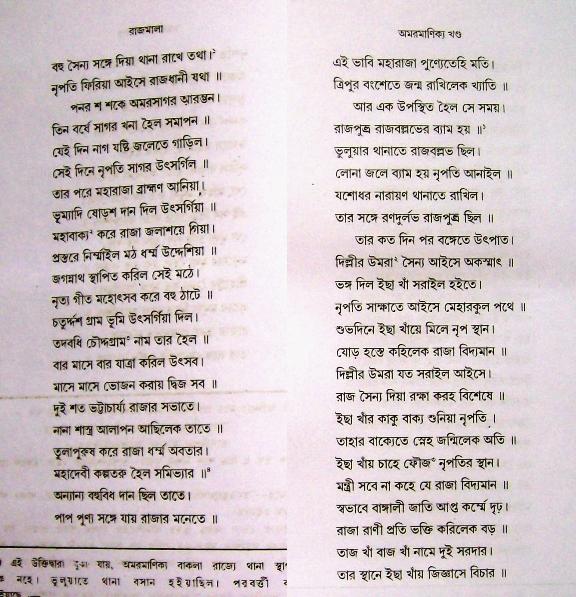 রাজমালা
বহু সৈন্য সঙ্গে দিয়া থানা রাখে তথা।২
নৃপতি ফিরিয়া আইসে রাজধানী যথা ॥
পনর শ শকে অমরসাগর আরম্ভন।
তিন বর্ষে সাগর খনা হৈল সমাপন ॥
যেই দিন নাগ যষ্টি জলেতে গাড়িল।
সেই দিনে নৃপতি সাগর উৎসর্গিল ॥
তার পরে মহারাজা ব্রাহ্মণ আনিয়া।
ভূম্যাদি ষোড়শ দান দিল উৎসর্গিয়া ॥
মহাবাক্য করে রাজা জলাশয়ে গিয়া।
প্রস্তরে নির্ম্মাইল মঠ ধর্ম্ম উদ্দেশিয়া ॥
জগন্নাথ স্থাপিত করিল সেই মঠে।
নৃত্য গীত মহোৎসব করে বহু ঠাটে ॥
চতুর্দ্দশ গ্রাম ভূমি উৎসর্গিয়া দিল।
তদবধি চৌদ্দগ্রাম নাম তার হৈল ॥
বার মাসে বার যাত্রা করিল উৎসব।
মাসে মাসে ভোজন করায় দ্বিজ সব ॥
দুই শত ভট্টাচার্য্য রাজার সভাতে।
নানা শাস্ত্র আলাপন আছিলেক তাতে ॥
তুলাপুরুষ করে রাজা ধর্ম্ম অবতার।
মহাদেবী কল্পতরু হৈল সমিভ্যার ॥৪
অন্যান্য বহুবিধ দান ছিল তাতে।
পাপ পুণ্য সঙ্গে যায় রাজার মনেতে ॥
এই উক্তিদ্বারা বুঝা যায়, অমরমাণিক্য বাকলা রাজ্যে থানা
নহে। ভুলুয়াতে থানা বসান হইয়াছিল। পরবর্ত্তী
অমরমাণিক্য খণ্ড
এই ভাবি মহারাজা পুণ্যেতেহি মতি।
ত্রিপুর বংশেতে জন্ম রাখিলেক খ্যাতি ॥
আর এক উপস্থিত হৈল সে সময়।
রাজপুত্র রাজবল্লভের ব্যাম হয় ॥১
ভুলুয়ার থানাতে রাজবল্লভ ছিল।
লোনা জলে ব্যাম হয় নৃপতি আনাইল ॥
যশোধর নারায়ণ থানাতে রাখিল।
তার সঙ্গে রণদুর্লভ রাজপুত্র ছিল ॥
তার কত দিন পর বঙ্গেতে উৎপাত।
দিল্লীর উমরা২ সৈন্য আইসে অকস্মাৎ ॥
ভঙ্গ দিল ইছা খাঁ সরাইল হইতে।
নৃপতি সাক্ষাতে আইসে মেহারকুল পথে ॥
শুভদিনে ইছা খাঁয়ে মিলে নৃপ স্থান।
যোড় হস্তে কহিলেক রাজা বিদ্যমান ॥
দিল্লীর উমরা যত সরাইল আইসে।
রাজ সৈন্য দিয়া রক্ষা করহ বিশেষে ॥
ইছা খাঁর কাকু বাক্য শুনিয়া নৃপতি।
তাহার বাক্যেতে স্নেহ জন্মিলেক অতি ॥
ইছা খাঁয় চাহে ফৌজ নৃপতির স্থান।
মন্ত্রী সবে না কহে যে রাজা বিদ্যমান ॥
স্বভাবে বাঙ্গালী জাতি আপ্ত কর্ম্মে দৃঢ়।
রাজা রাণী প্রতি ভক্তি করিলেক বড় ॥
তাজ খাঁ বাজ খাঁ নামে দুই সরদার।
তার স্থানে ইছা খাঁয় জিজ্ঞাসে বিচার ॥